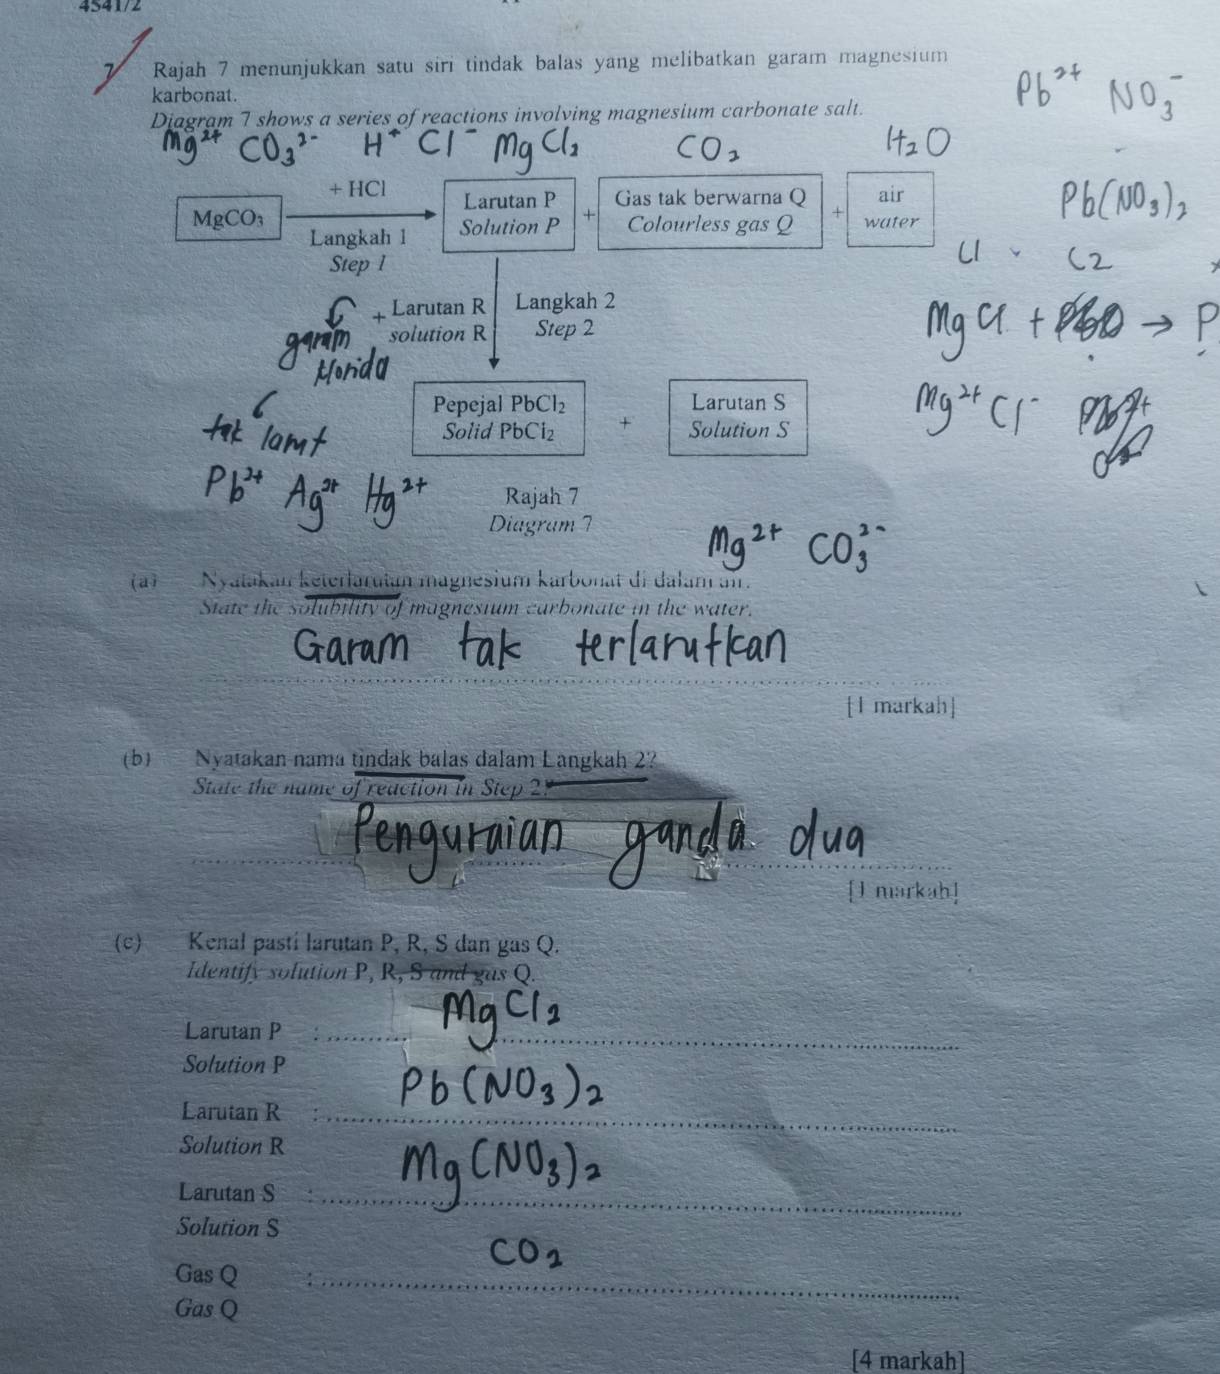 4541/2
7 Rajah 7 menunjukkan satu siri tindak balas yang melibatkan garam magnesium
karbonat.
Diagram 7 shows a series of reactions involving magnesium carbonate salt.
Pb²⁺ NO₃⁻
Mg²⁺ CO₃²⁻ H⁺ Cl⁻ MgCl₂ CO₂ H₂O
Pb(NO₃)₂
MgCO₃
+ HCl
Langkah 1
Step 1
Larutan P
Solution P
+
Gas tak berwarna Q
Colourless gas Q
+
air
water
Cl C2
+ Larutan R
solution R
Langkah 2
Step 2
garam
klorida
MgCl + → P
Mg²⁺ Cl⁻
Pepejal PbCl₂
Solid PbCl₂
+
Larutan S
Solution S
tak larut
Pb²⁺ Ag²⁺ Hg²⁺
Rajah 7
Diagram 7
Mg²⁺ CO₃²⁻
(a) Nyatakan keterlarutan magnesium karbonat di dalam air.
State the solubility of magnesium carbonate in the water.
Garam tak terlarutkan
[1 markah]
(b) Nyatakan nama tindak balas dalam Langkah 2?
State the name of reaction in Step 2?
Penguraian ganda dua
[1 markah]
(c) Kenal pasti larutan P, R, S dan gas Q.
Identify solution P, R, S and gas Q.
Larutan P : MgCl₂
Solution P
Larutan R : Pb(NO₃)₂
Solution R
Larutan S : Mg(NO₃)₂
Solution S
Gas Q : CO₂
Gas Q
[4 markah]